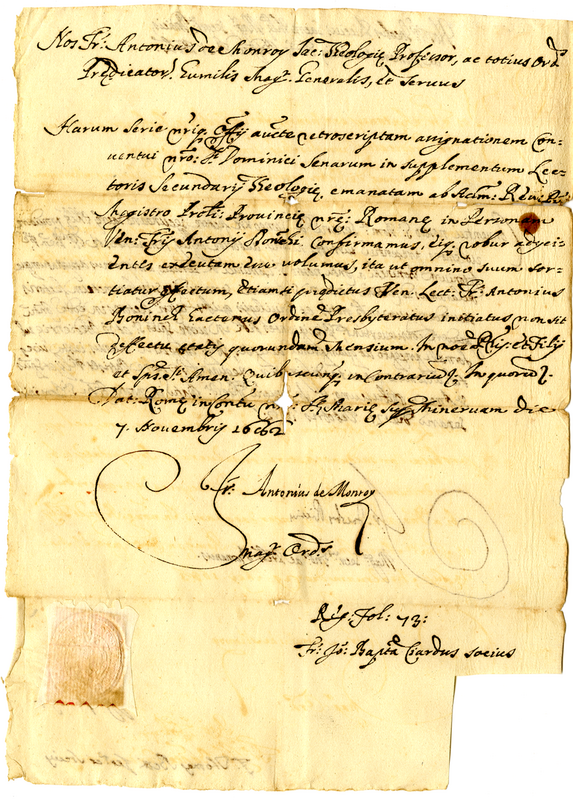 Nos Fr. Antonius de Monroy Sac: Theologię Professor, ac totius Ord.
Prędicator. humilis Mag.r Generalis, et servus
Harum serie nr̃iq. officij aucte retroscriptam assignationem Con-
ventui nr̃o S. Dominici Senarum in supplementum Lec-
toris Secundarij Theologię, emanatam ab Adm. Rev. P.
Magistro Proli: Provincię nr̃ę Romanę in Personam
Ven: Fris Antonij confirmamus, eiq. robur adijci-
entes executam volumus, ita ut omnino suum sor-
tiatur effectum, etiamsi prędictus Ven. Lect. Fr. Antonius
hactenus Ordine Presbyteratus initiatus non sit
defectu ętatis quorundam Mensium. In noĩe Pris, et Filij
et Sp. S.ti Amen. Quibuscunq. in contrarium In quorum
Dat: Romę in Contu nr̃o S. Marię sup. Minervam die
7. Novembris 1682
Fr. Antonius de Monroy
Mag.r Ord.s
Reg: fol: 73:
Fr. Jo: Bapta Ciardus socius